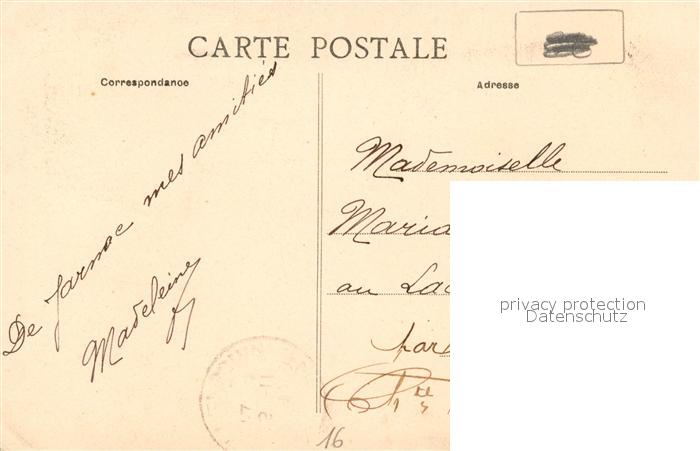 CARTE POSTALE
Correspondance
Adresse
De Jarnac mes amitiés
Madeleine
Mademoiselle
Maria
au Lac
par
privacy protection
Datenschutz
16